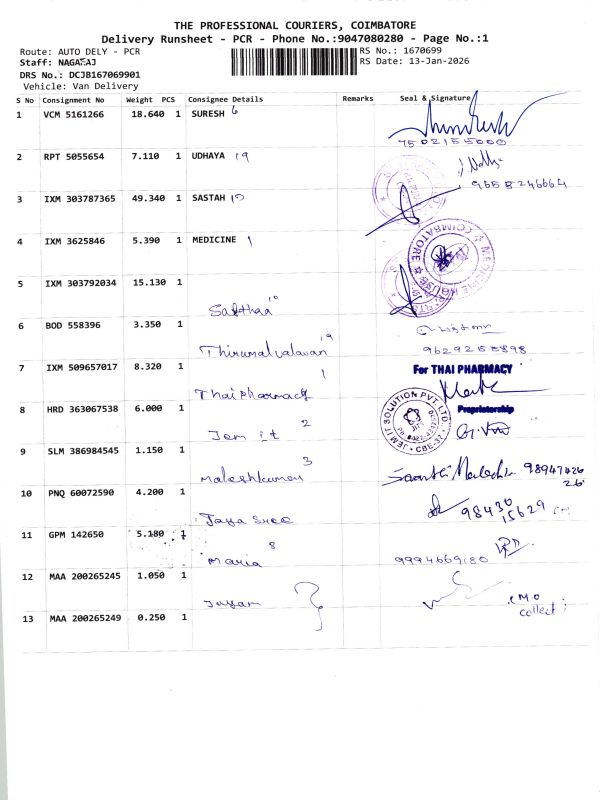 THE PROFESSIONAL COURIERS, COIMBATORE
Delivery Runsheet - PCR - Phone No.:9047080280 - Page No.:1
Route: AUTO DELY - PCR RS No.: 1670699
Staff: NAGARAJ RS Date: 13-Jan-2026
DRS No.: DCJB167069901
Vehicle: Van Delivery
S No Consignment No Weight PCS Consignee Details Remarks Seal & Signature
1 VCM 5161266 18.640 1 SURESH 6
7502155000
2 RPT 5055654 7.110 1 UDHAYA 19
9658246664
3 IXM 303787365 49.340 1 SASTAH 10
4 IXM 3625846 5.390 1 MEDICINE 1
COIMBATORE
5 IXM 303792034 15.130 1
Sakthaa 10
6 BOD 558396 3.350 1
Thirumalvalavan 19
9629255898
7 IXM 509657017 8.320 1
Thaipharmacy 1
For THAI PHARMACY
Proprietorship
8 HRD 363067538 6.000 1
Jem it 2
JEM IT SOLUTION PVT. LTD.
9 SLM 386984545 1.150 1
Maleshkumar 3
9894742626
10 PNQ 60072590 4.200 1
Jaya Sree
98430 15629
11 GPM 142650 5.180 1
maria 8
9994669180
12 MAA 200265245 1.050 1
Jayam
13 MAA 200265249 0.250 1
collect